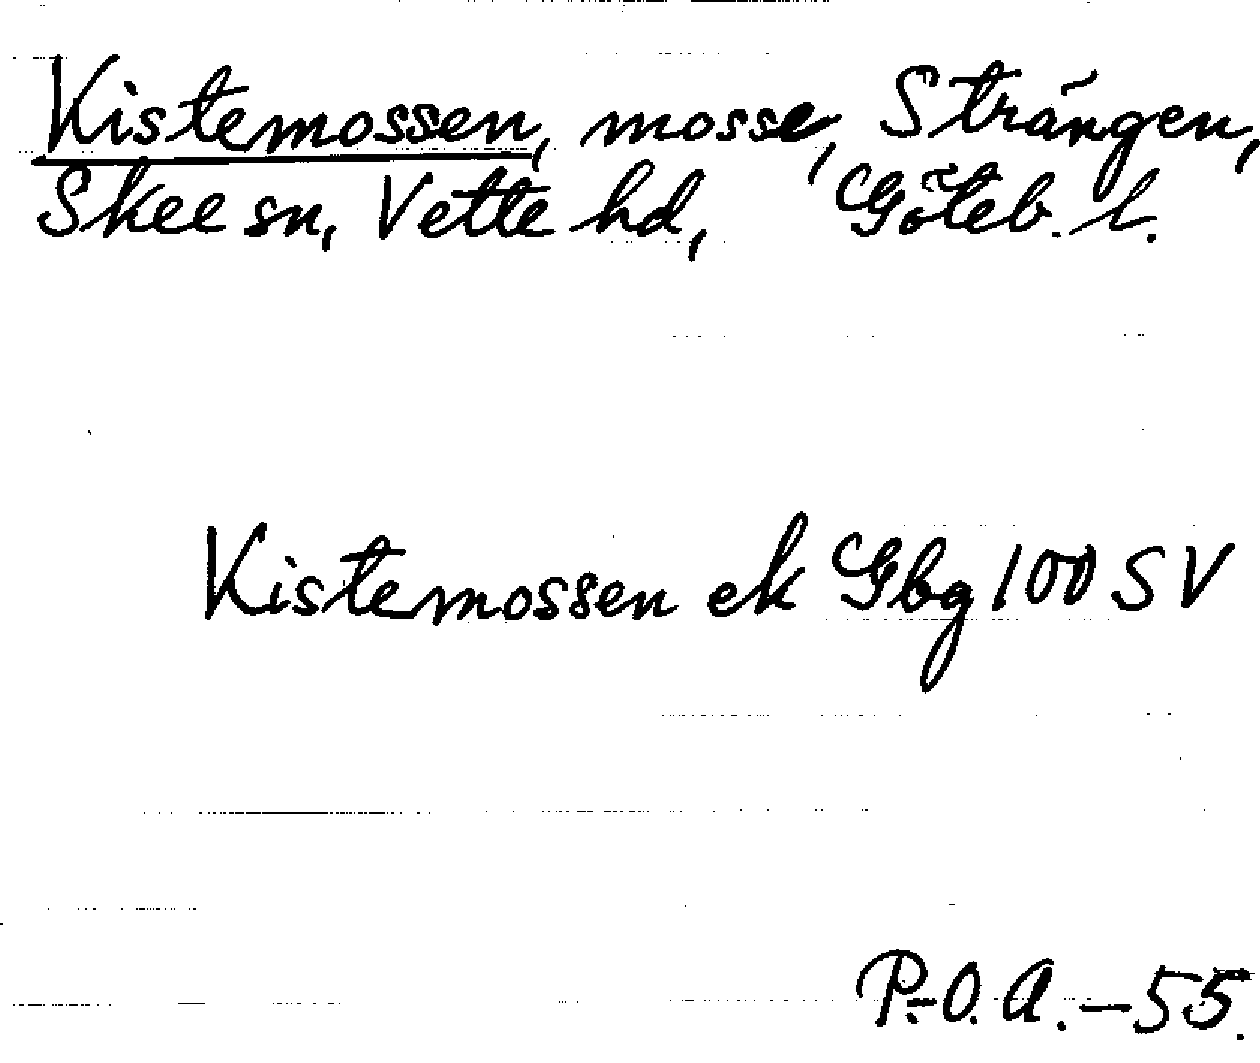 Kistemossen, mosse, Strängen,
Skee sn, Vette hd, Göteb. l.
Kistemossen ek Gbg 100 SV
P.-O. A. – 55.